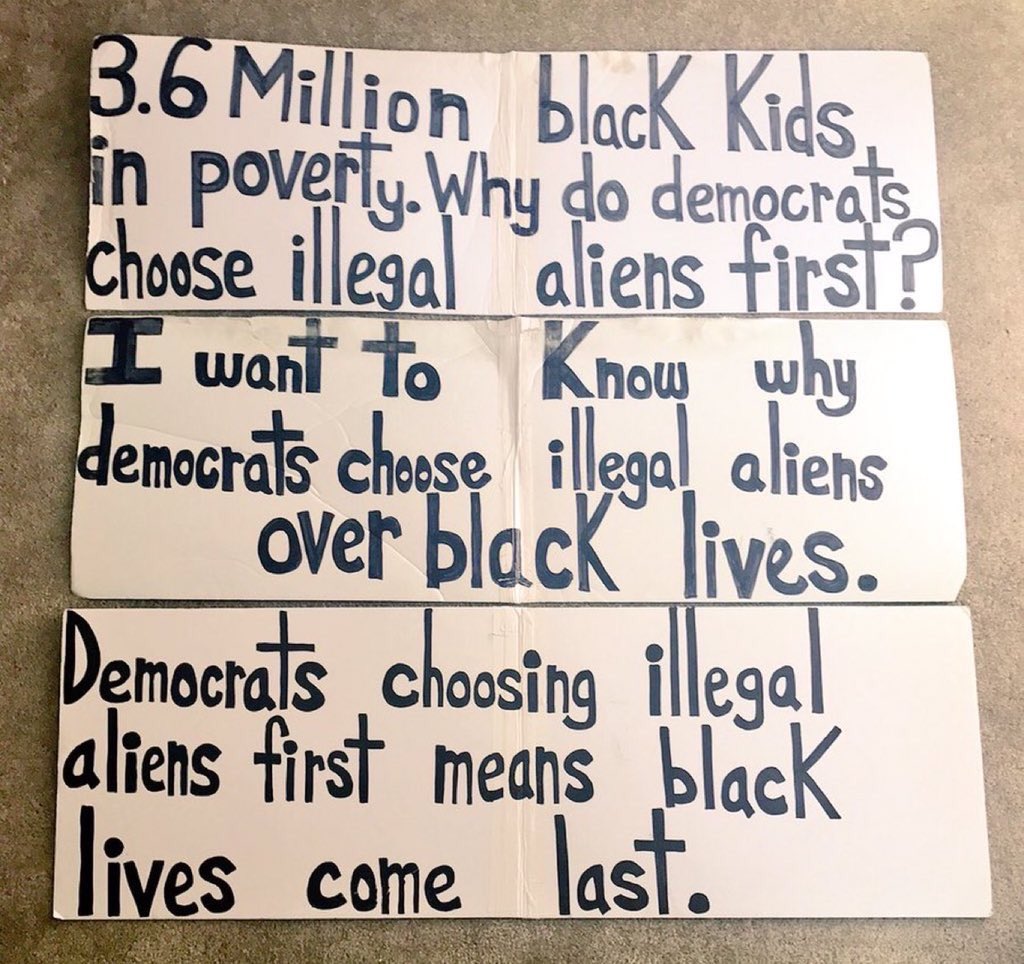 3.6 Million black Kids
in poverty. Why do democrats
choose illegal aliens first?
I want to Know why
democrats choose illegal aliens
over black lives.
Democrats choosing illegal
aliens first means black
lives come last.